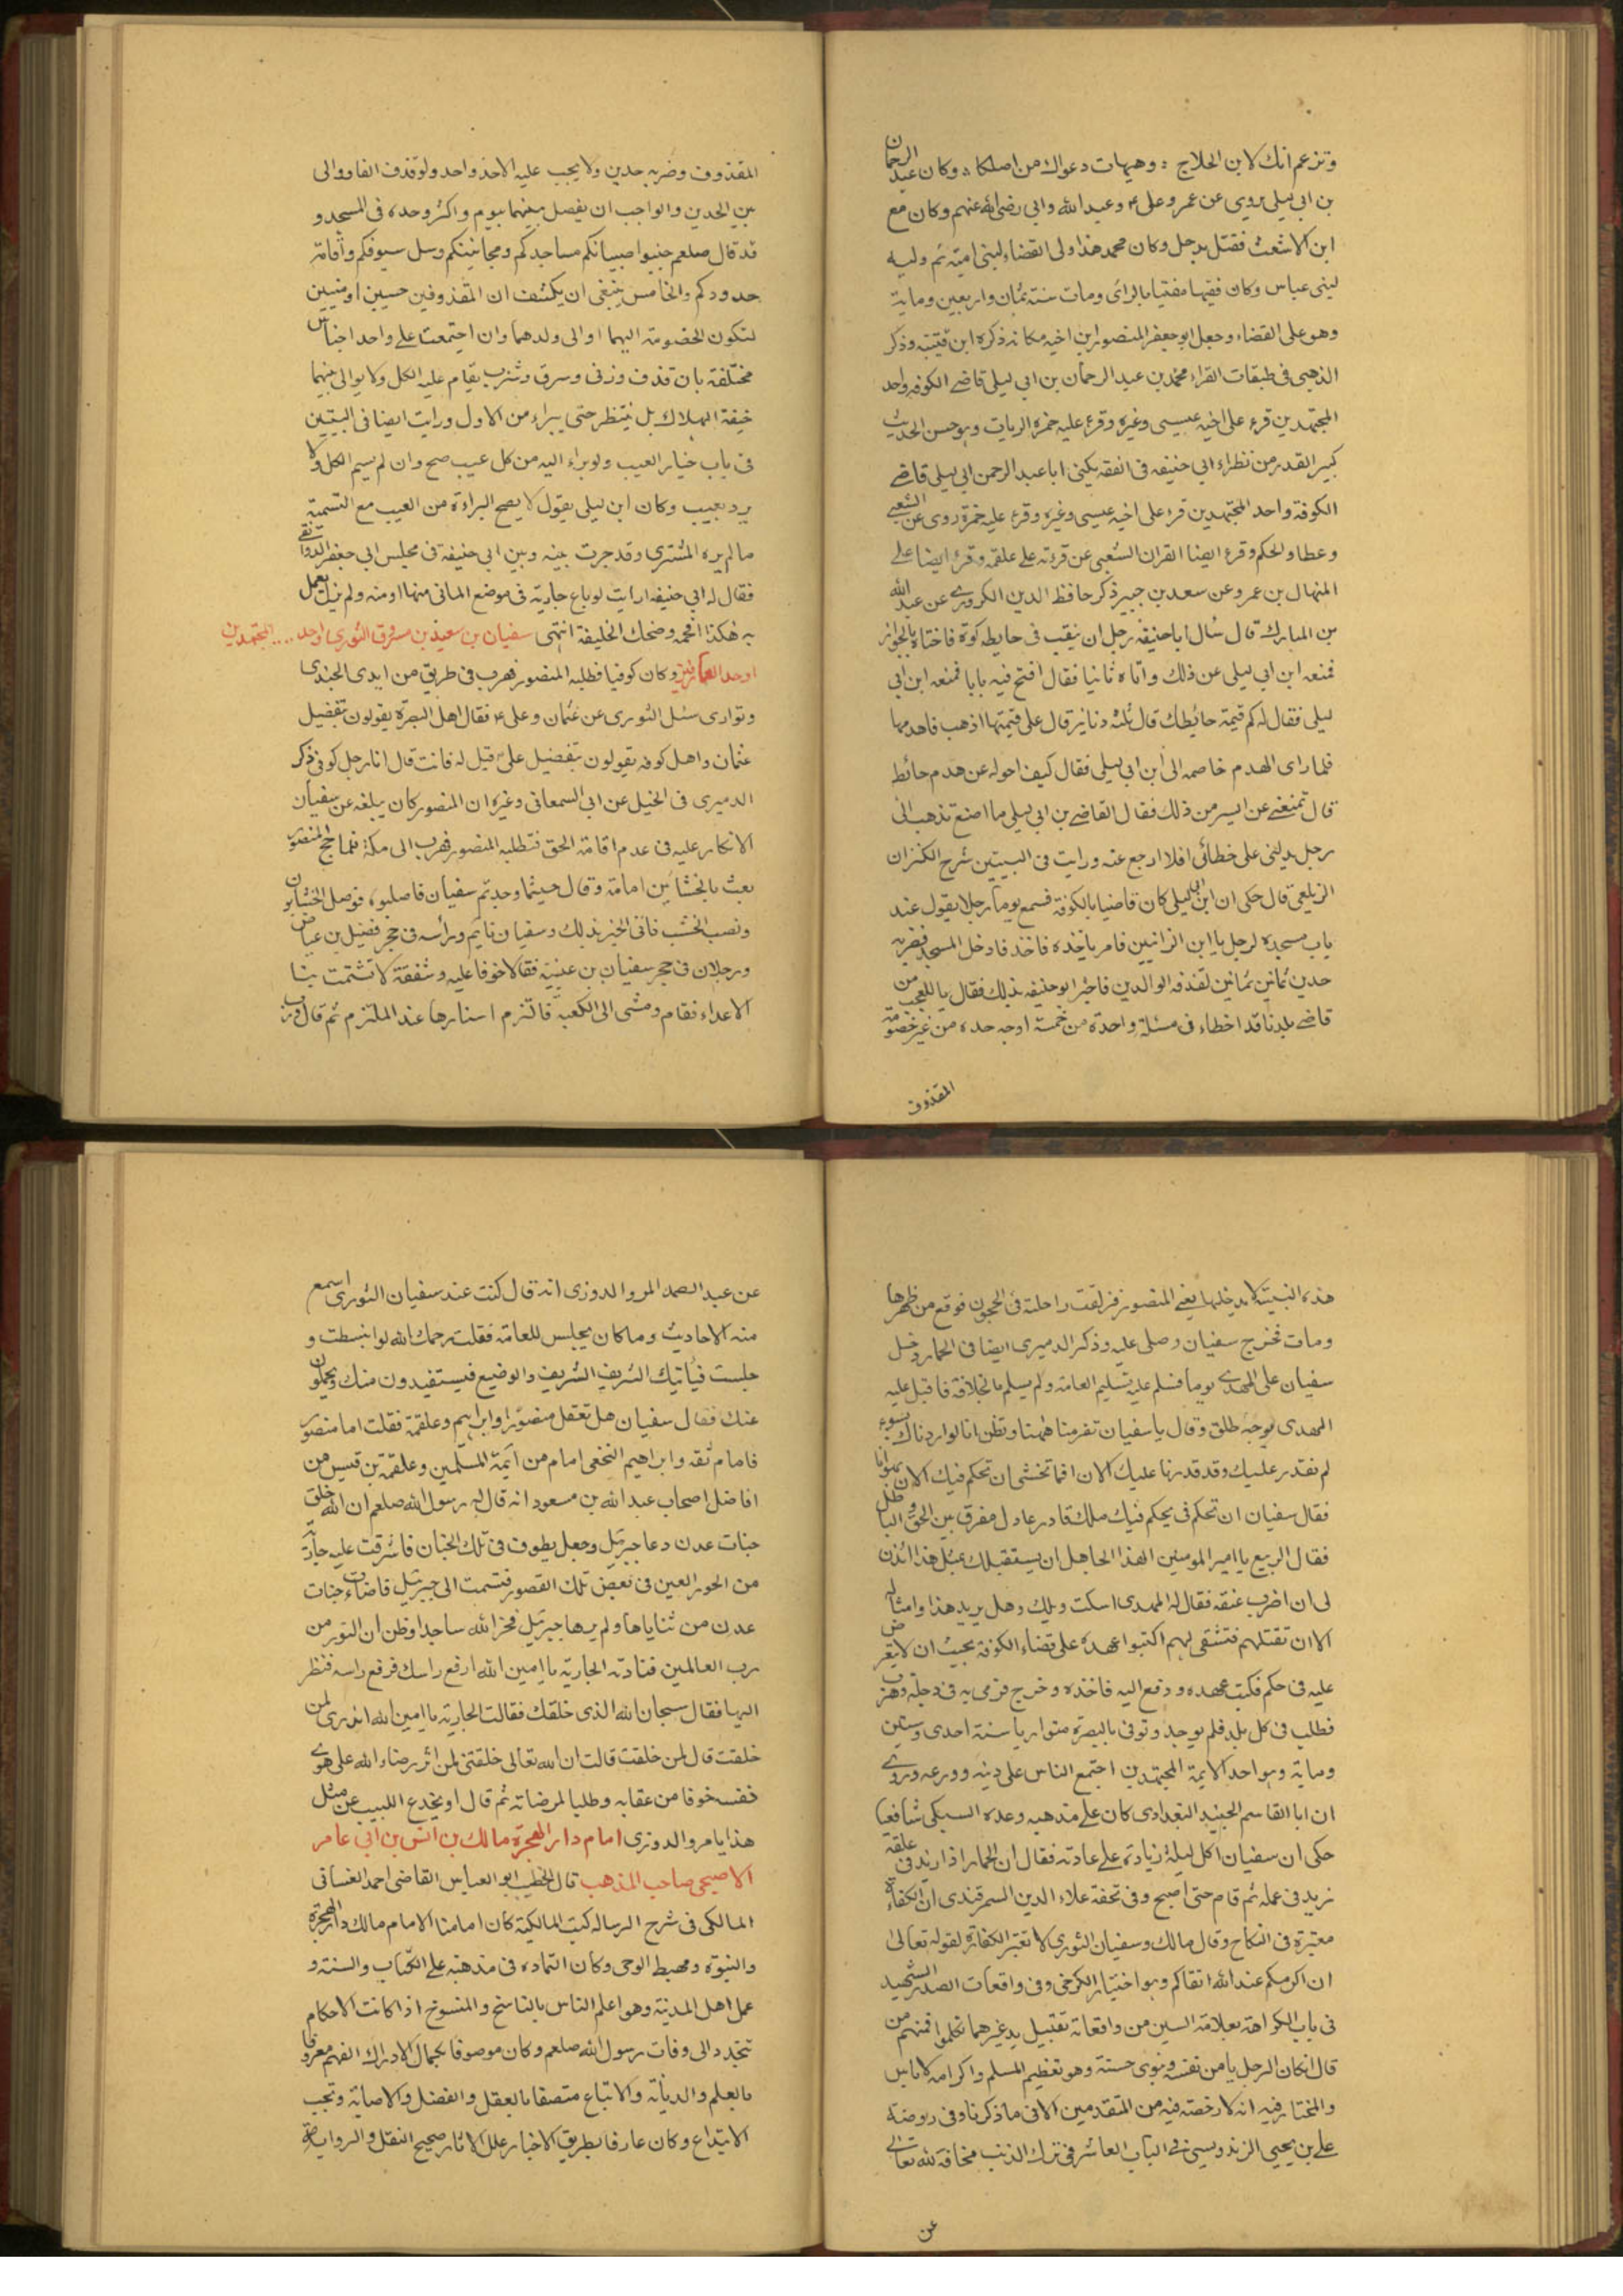 وتزعم انك لابن الجلاح : وهيهات دعواك من اصلكا : وكان عبد الرحمان
بن ابي ليلى يروى عن عمر وعلى ء وعبد الله وابي رضي الله عنهم وكان مع
ابن الاشعث فقتل بدجل وكان محمد هذا ولى القضاء لبنى امية ثم وليه
لبنى عباس وكان فقيها مفتيا بالرائ ومات سنة ثمان واربعين وماية
وهو على القضاء وجعل ابو جعفر المنصور ابن اخيه مكانه ذكره ابن قتيبة وذكر
الذهبي في طبقات القراء محمد بن عبد الرحمان بن ابي ليلى قاضے الكوفه واحد
المجتهدين قرء على اخيه عيسى وغيره وقرء عليه حمزة الزيات وهو حسن الحديث
كبير القدر من نظراء ابي حنيفه في الفقه يكنى ابا عبد الرحمن ابي ليلى قاضے
الكوفة واحد المجتهدين قرء على اخيه عيسى وغيره وقرء عليه حمزة روى عن الشعبے
وعطا والحكم وقرء ايضا القران الشعبى عن قرءته علے علقمه وقرء ايضا علے
المنهال بن عمرو عن سعد بن جبير ذكر حافظ الدين الكردرے عن عبد الله
بن المبارك قال سأل ابا حنيفة رجل ان ينقب في حايطه كوة فاختاه بالجواز
فمنعه ابن ابي ليلى عن ذلك واتاه ثانيا فقال افتح فيه بابا فمنعه ابن ابي
ليلى فقال له كم قيمة حائطك قال ثلثة دنانيز قال على قيمتها اذهب فاهدمها
فلما راى الهدم خاصمه الى ابن ابي ليلى فقال كيف احوله عن هدم حائط
قال تمنعنے عن ايسر من ذلك فقال القاضے بن ابي ليلى ما اصنع تذهب الى
رجل يدلني على خطائى افلا ارجع عنه ورايت في البيتين شرح الكنزان
الزيلعى قال حكى ان ابن ابي ليلى كان قاضيا بالكوفة فسمع يوما رجلا يقول عند
باب مسجده لرجل يا ابن الزانيين فامر باخذه فاخذ فادخل المسجد فضربه
حدين ثمانين ثمانين لقذفه الوالدين فاخبر ابو حنيفه بذلك فقال يا للعجب من
قاضے بلدنا قد اخطاء في مسئلة واحدة من خمسة اوجه حده من غير خصومة
المقذوف
المقذوف وضربه حدين ولا يجب عليه الا حد واحد ولو قذف الفا ووالى
بين الحدين والواجب ان يفصل بينهما بيوم واكثر وحده في المسجد و
قد قال صلعم جنبوا صبيانكم مساجدكم ومجانينكم وسل سيوفكم واقامة
حدودكم والخامس ينبغى ان يكشف ان المقذوفين حسين او ميتين
لتكون الخصومة اليهما او الى ولدهما وان اجتمعت علے واحد اجناس
مختلفة بان قذف وزنى وسرق وشرب يقام عليه الكل ولا يوالى بينهما
خيفة الهلاك بل ينتظر حتى يبراء من الاول ورايت ايضا في البيتين
في باب خيار العيب ولو براء اليه من كل عيب صح وان لم يسم الكل ولا
يرد بعيب وكان ابن ليلى يقول لا يصح البراءة من العيب مع التسمية
ما لم يره المشترى وقد جرت بينه وبين ابي حنيفة في مجلس ابي جعفر الدوانقے
فقال له ابي حنيفه ارايت لو باع جارية في موضع الماتى منها او منه ولم يزل يعمل
به هكذا افحمه وضحك الخليفة انتهى سفيان بن سعيد بن مسروق الثورى احد .... المجتهدين
اوحد العمائزيز وكان كوفيا فطلبه المنصور فهرب في طريق من ايدى الجندى
وتوارى سئل الثورى عن عثمان وعلى ء فقال اهل البصرة يقولون بتفضيل
عثمان واهل كوفه يقولون بتفضيل على قيل له فانت قال انا رجل كوفى ذكر
الدميرى في الخيل عن ابي السمعانى وغيره ان المنصور كان يبلغه عن سفيان
الانكار عليه في عدم اقامة الحق فتطلبه المنصور فهرب الى مكة فلما حج المنصور
بعث بالخشابين امامه وقال حيثما وجدتم سفيان فاصلبوه فوصل الخشابون
ونصب الخشب فاتى الخبر بذلك وسفيان نايم وراسه في حجر فضيل بن عياض
ورجلان في حجر سفيان بن عيينة فقالا خوفا عليه وشفقة لا تشمت بنا
الاعداء فقام ومشى الى الكعبة فالتزم استارها عند الملتزم ثم قال ورب
هذه البنية لا يدخلها يعنے المنصور فزلقت راحلته في الحجون فوقع من ظهرها
ومات فخرج سفيان وصلى عليه وذكر الدميرى ايضا في الحمار دخل
سفيان على المهدے يوما فسلم عليه تسليم العامة ولم يسلم بالخلافة فاقبل عليه
المهدى بوجه طلق وقال يا سفيان تفر منا ههنا وتظن انا لو اردناك بسوء
لم نقدر عليك وقد قدرنا عليك الان افما تخشى ان نحكم فيك الان بهوانا
فقال سفيان ان تحكم في يحكم فيك ملك قادر عادل مفرق بين الحق والباطل
فقال الربيع يا امير المومنين الهذا الجاهل ان يستقبلك بمثل هذا ائذن
لى ان اضرب عنقه فقال له المهدى اسكت ويلك وهل يريد هذا وامثاله
الا ان تقتلهم فتشقى بهم اكتبوا عهده على قضاء الكوفة بحيث ان لا يعترض
عليه في حكم فكتب عهده ودفع اليه فاخذه وخرج فرمى به في دجلة وهرب
فطلب في كل بلد فلم يوجد وتوفى بالبصرة متواريا سنة احدى وستين
وماية وهو احد الايمة المجتهدين اجتمع الناس على دينه وورعه وروے
ان ابا القاسم الجنيد البغدادى كان علے مذهبه وعده السبكى شافعيا
حكى ان سفيان اكل ليلة زيادة علے عادته فقال ان الحمار اذا زيد في علقه
زيد في عمله ثم قام حتى اصبح وفي تحفة علاء الدين السمرقندى ان الكفاءة
معتبرة في النكاح وقال مالك وسفيان الثورى لا تعتبر الكفاءة لقوله تعالى
ان اكرمكم عند الله اتقاكم وهو اختيار الكرخى وفى واقعات الصدر الشهيد
في باب الكراهة بعلامة السين من واقعاته تقبيل يد غيرهما تكلموا فمنهم من
قال انكان الرجل يامن نفسه وينوى حسنة وهو تعظيم المسلم واكرامه لا باس
والمختار فيه انه لا رخصة فيه من المتقدمين الا في ما ذكرنا وفى روضة
علے بن يحيى الزندويسى في الباب العاشر في ترك الذنب مخافة لله تعالى
عن
عن عبد الصمد المروالدوزى انه قال كنت عند سفيان الثورى اسمع
منه الاحاديث وما كان يجلس للعامة فقلت رحمك الله لو انبسطت و
جلست فياتيك الشريف الشريف والوضيع فيستفيدون منك ويحملون
عنك فقال سفيان هل تعقل منصورا وابراهيم وعلقمة فقلت اما منصور
فامام ثقه وابراهيم النخعى امام من ايمة المسلمين وعلقمة بن قيس من
افاضل اصحاب عبد الله بن مسعود انه قال له رسول الله صلعم ان الله خلق
جنات عدن دعا جبرئيل وجعل يطوف في تلك الجنان فاشرقت عليه جارية
من الحور العين في بعض تلك القصور فتبسمت الى جبرئيل فاضاءت جنات
عدن من ثناياها ولم يرها جبرئيل فخر الله ساجدا وظن ان النور من
رب العالمين فنادته الجارية يا امين الله ارفع راسك فرفع راسه فنظر
اليها فقال سبحان الله الذى خلقك فقالت الجارية يا امين الله اتدرى لمن
خلقت قال لمن خلقت قالت ان الله تعالى خلقتنى لمن اثر رضاء الله على هوے
نفسه خوفا من عقابه وطلبا لمرضاته ثم قال او يخدع اللبيب عن مثل
هذا يا مروالدوزى امام دار الهجرة مالك بن انس بن ابي عامر
الاصبحى صاحب المذهب قال الخطيب ابو العباس القاضى احمد الغسانى
المالكى في شرح الرسالة كتب المالكية كان امامنا الامام مالك دار الهجرة
والنبوة ومهبط الوحى وكان اعتماده في مذهبه على الكتاب والسنة و
عمل اهل المدينة وهو اعلم الناس بالناسخ والمنسوخ اذا كانت الاحكام
تتجدد الى وفات رسول الله صلعم وكان موصوفا بكمال الادراك الفهم معروفا
بالعلم والديانة والاتباع متصفا بالعقل والفضل والاصابة وتجنب
الابتداع وكان عارفا بطريق الاخبار علل الاثار صحيح النقل والرواية